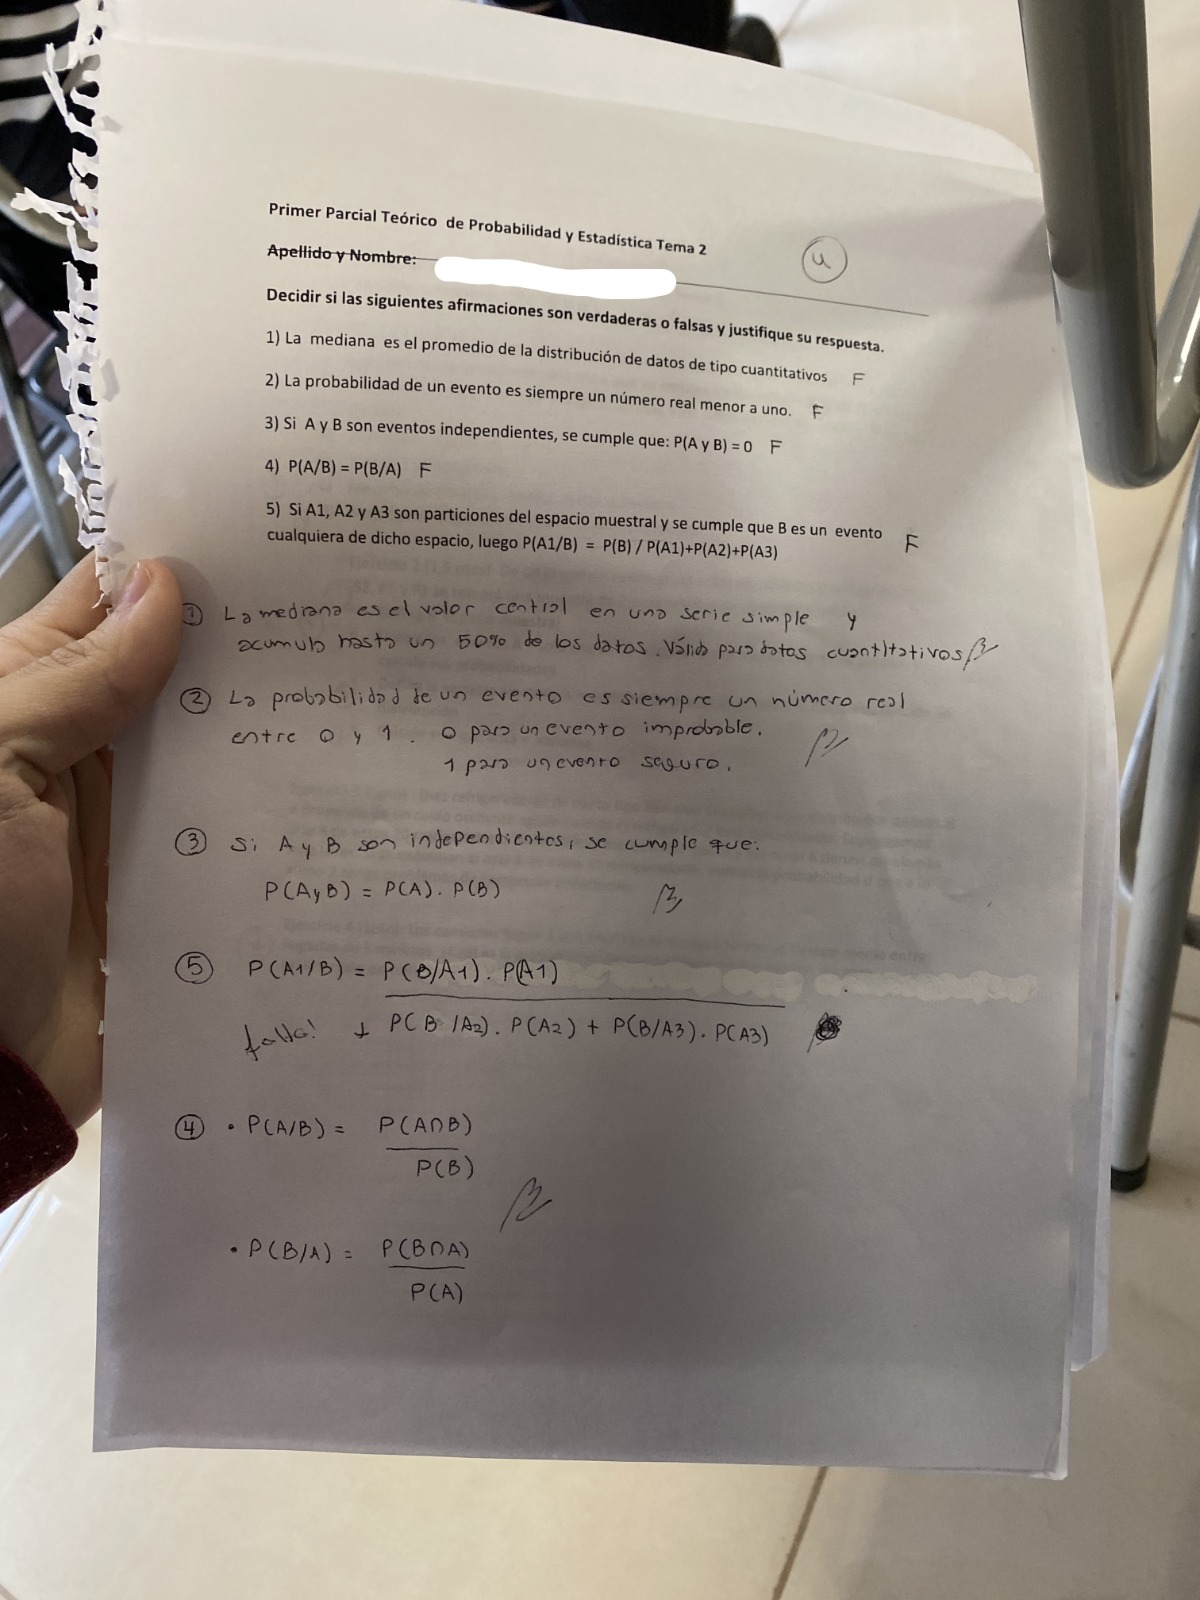 Primer Parcial Teórico de Probabilidad y Estadística Tema 2
Apellido y Nombre:
Decidir si las siguientes afirmaciones son verdaderas o falsas y justifique su respuesta.
1) La mediana es el promedio de la distribución de datos de tipo cuantitativos F
2) La probabilidad de un evento es siempre un número real menor a uno. F
3) Si A y B son eventos independientes, se cumple que: P(A y B) = 0 F
4) P(A/B) = P(B/A) F
5) Si A1, A2 y A3 son particiones del espacio muestral y se cumple que B es un evento F
cualquiera de dicho espacio, luego P(A1/B) = P(B) / P(A1)+P(A2)+P(A3)
① La mediana es el valor central en una serie simple y
acumula hasta un 50% de los datos. Válida para datos cuantitativos
② La probabilidad de un evento es siempre un número real
entre 0 y 1. 0 para un evento improbable.
1 para un evento seguro.
③ Si A y B son independientes, se cumple que:
P(A y B) = P(A). P(B)
⑤ P(A1/B) = P(B/A1). P(A1)
falta! + P(B/A2). P(A2) + P(B/A3). P(A3)
④ • P(A/B) = P(A∩B)
P(B)
• P(B/A) = P(B∩A)
P(A)